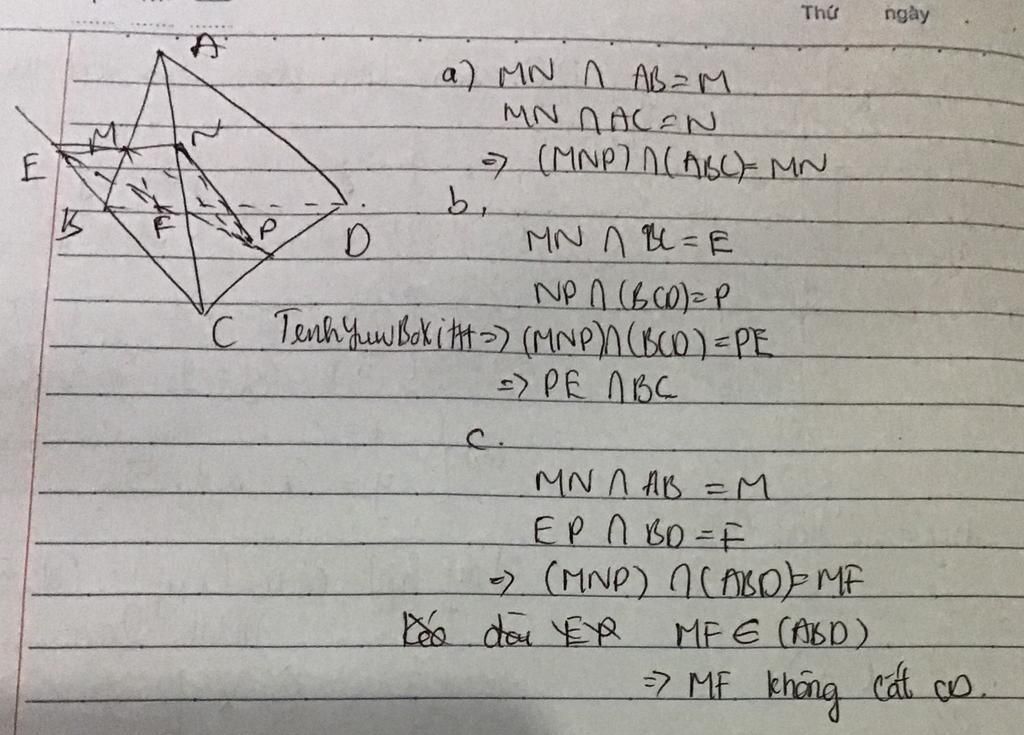 Thứ ngày
A
M N
E
B F P D
C
a) MN ∩ AB = M
MN ∩ AC = N
=> (MNP) ∩ (ABC) = MN
b,
MN ∩ BC = E
NP ∩ (BCD) = P
TenhYuwBoxiтт => (MNP) ∩ (BCD) = PE
=> PE ∩ BC
c.
MN ∩ AB = M
EP ∩ BD = F
=> (MNP) ∩ (ABD) = MF
Kéo dài EP MF ∈ (ABD)
=> MF không cắt CD.